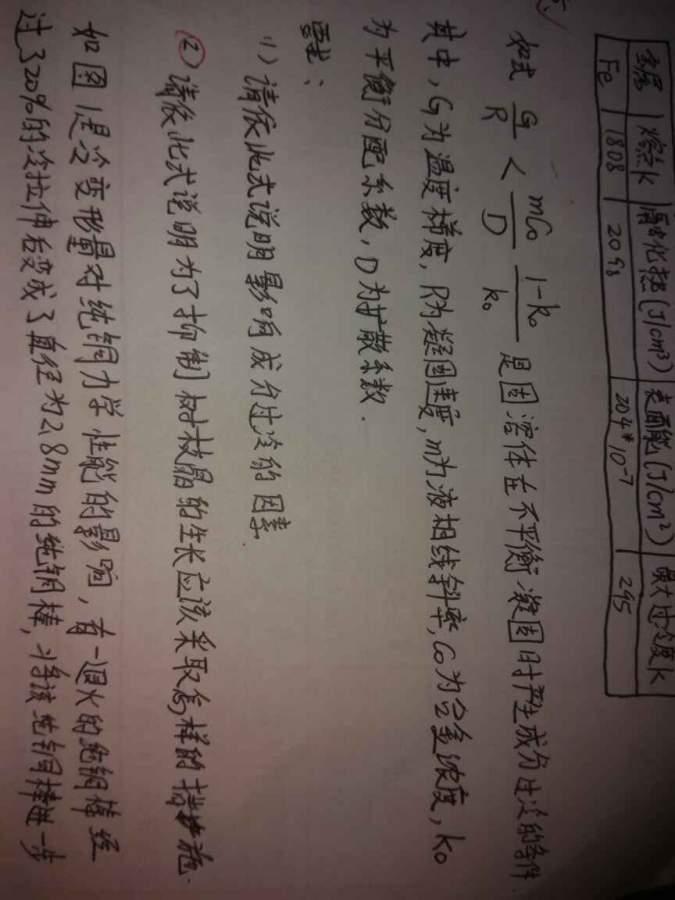 金属 熔点K 熔化热(J/cm³) 表面能(J/cm²) 最大过冷度K
Fe 1808 2098 204*10⁻⁷ 295
公式 G/R < mC₀/D 1-k₀/k₀ 是固溶体在不平衡凝固时产生成分过冷的条件
其中，G为温度梯度，R为凝固速度，m为液相线斜率，C₀为合金浓度，k₀
为平衡分配系数，D为扩散系数．
要求：
(1) 请依此式说明影响成分过冷的因素．
② 请依此式说明为了抑制树枝晶的生长应该采取怎样的措施．
如图1是冷变形量对纯铜力学性能的影响，有一退火的纯铜棒经
过了20%的冷拉伸后变成了直径为2.8mm的纯铜棒，将该纯铜棒进一步